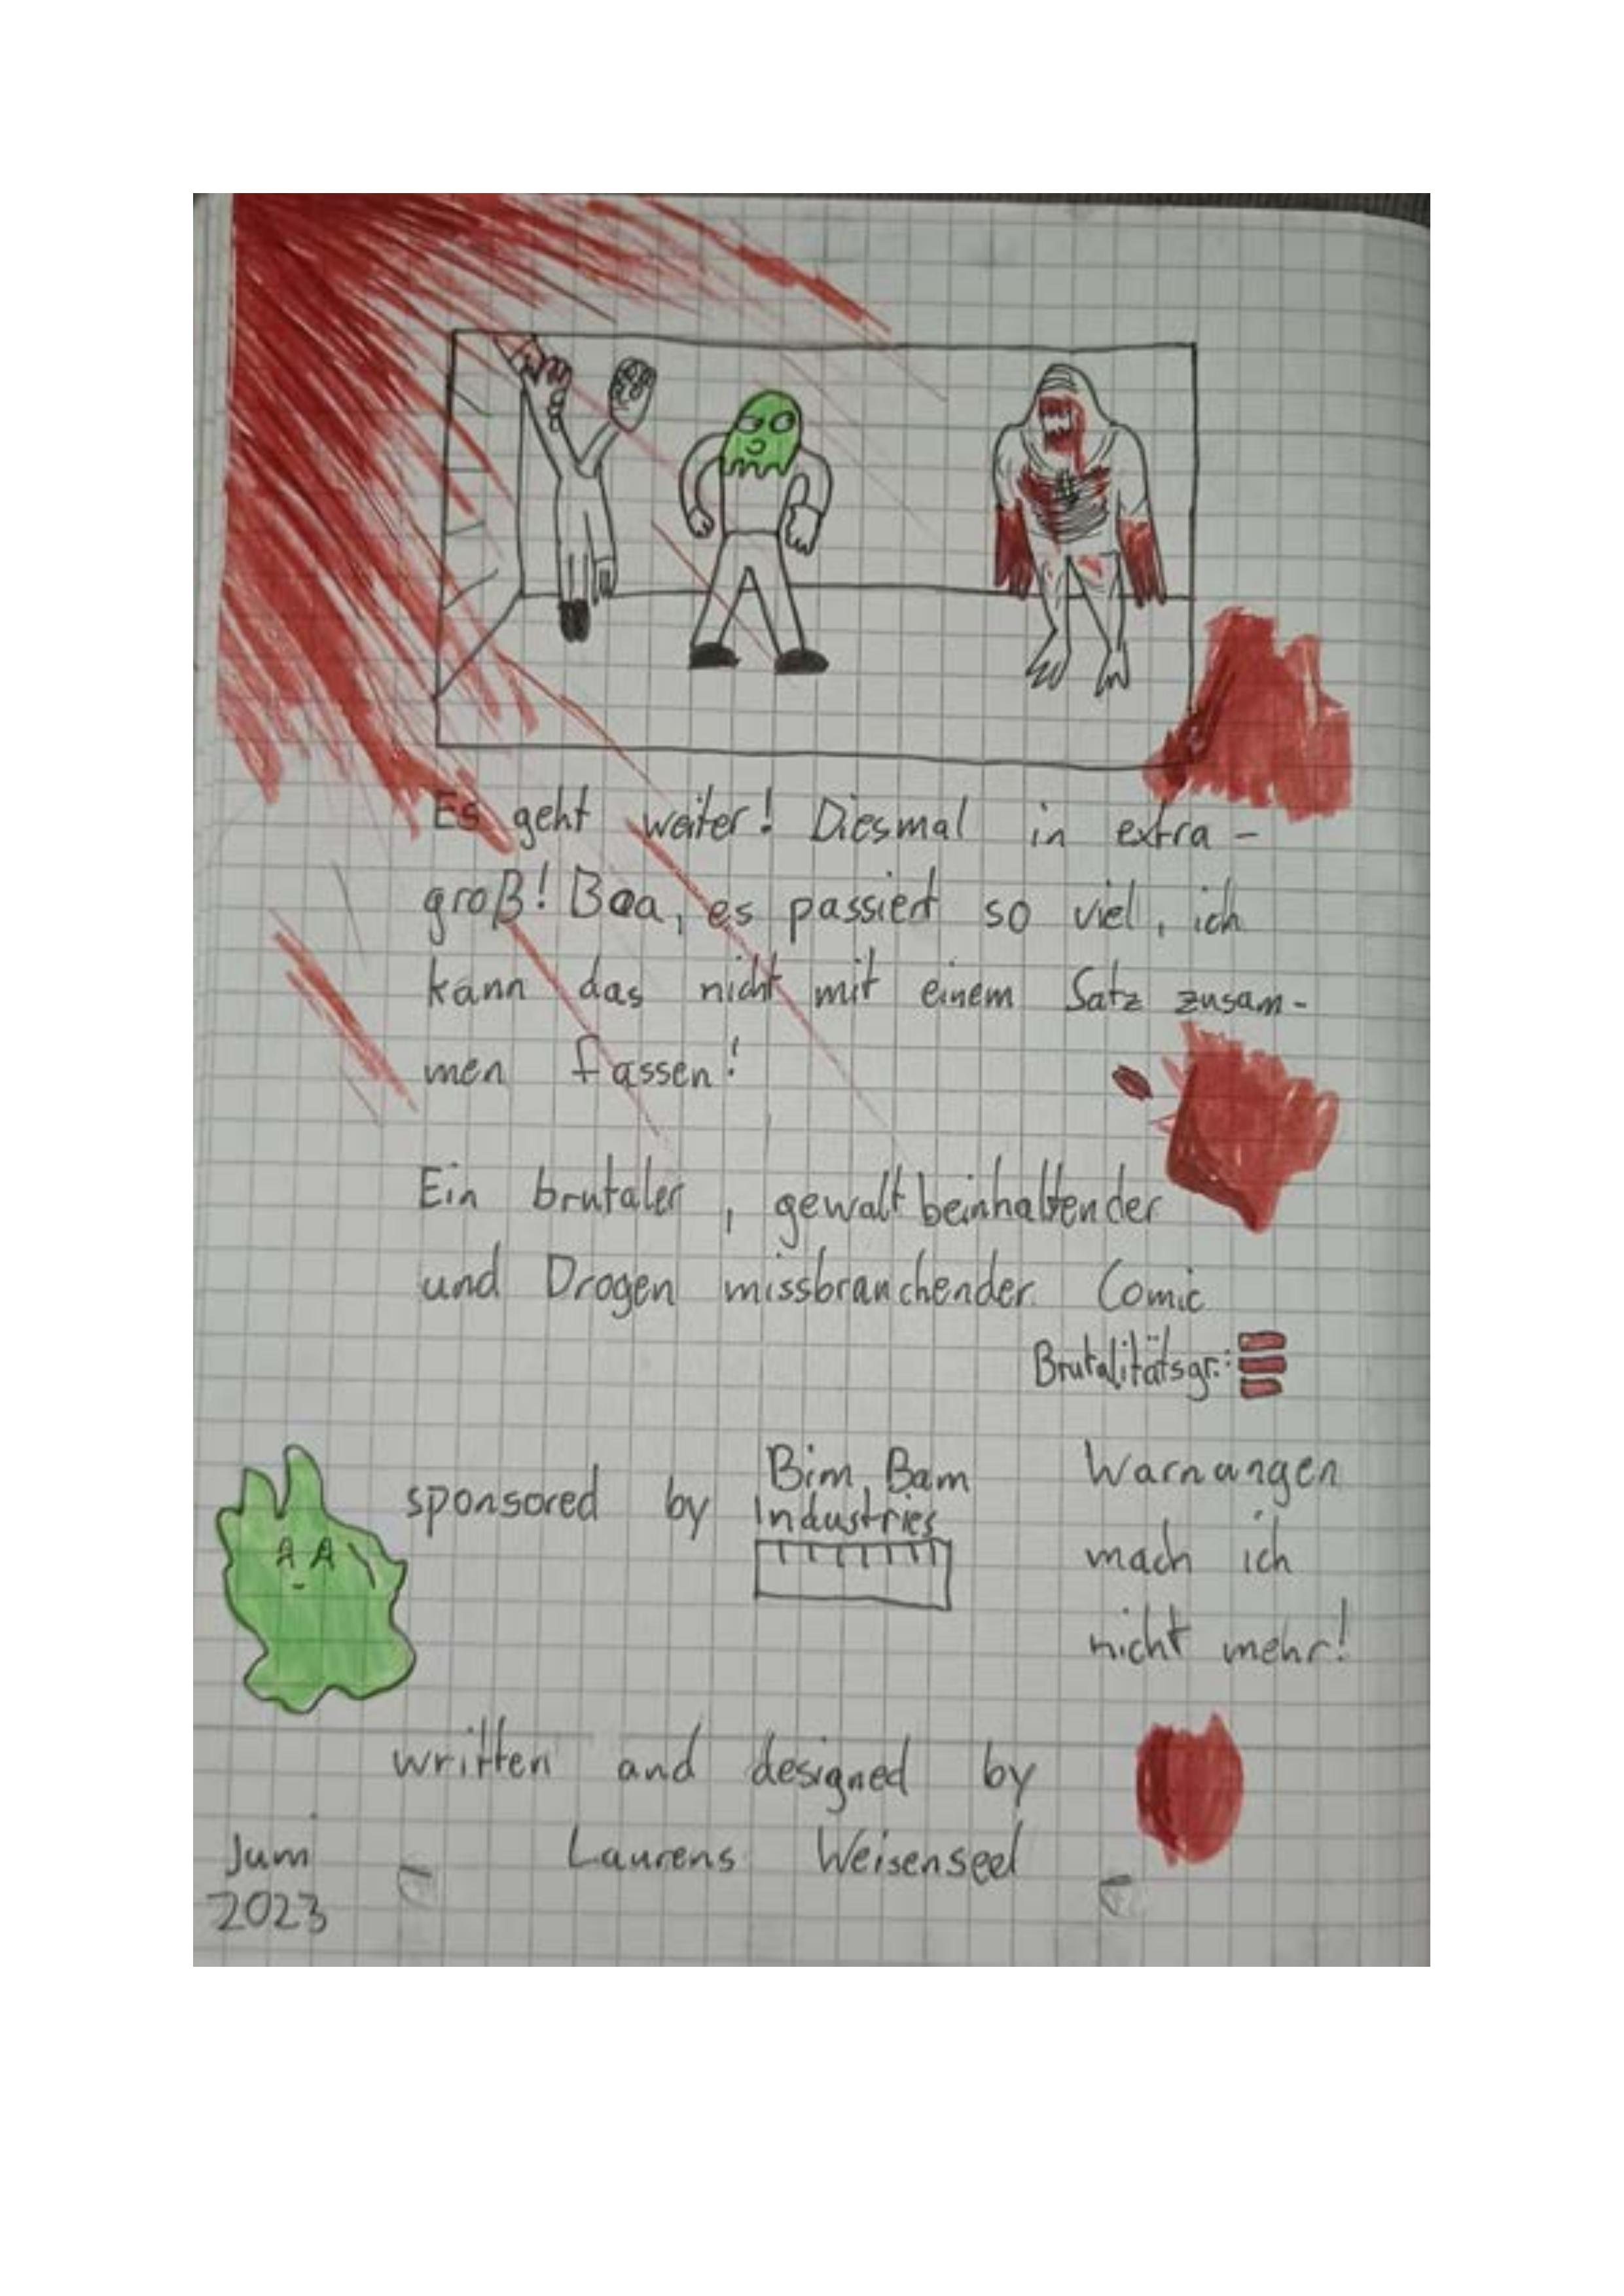 Es geht weiter! Diesmal in extra-
groß! Boa, es passiert so viel, ich
kann das nicht mit einem Satz zusam-
men fassen!
Ein brutaler, gewaltbeinhaltender
und Drogen missbrauchender Comic
Brutalitätsgr.:
sponsored by Bim Bam
Industries
Warnungen
mach ich
nicht mehr!
written and designed by
Laurens Weisenseel
Juni
2023